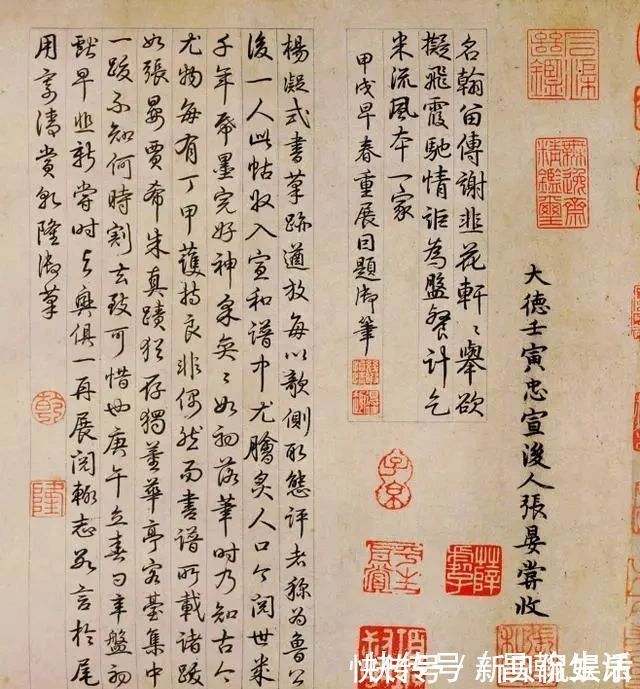 大德壬寅忠宣後人張晏嘗收
名翰留傳謝韭花軒〻舉欲
擬飛霞馳情詎為盤餐計乞
米流風本一家
甲戌早春重展因題御筆
楊凝式書草跡遒放每以欹側取態評者稱為魯公
後一人此帖收入宣和譜中尤膾炙人口今閱世幾
千年帋墨完好神采奕〻如初落筆時乃知古今
尤物每有丁甲護持良非偶然而書譜所載諸跋
如張晏賈希朱真蹟猶存獨董華亭容臺集中
一跋不知何時割去致可惜也庚午立春日辛盤初
獻早韭新嘗時與興俱一再展閱輒志數言於尾
用寄清賞乾隆御筆
乾
隆
無逸齋精鑑璽